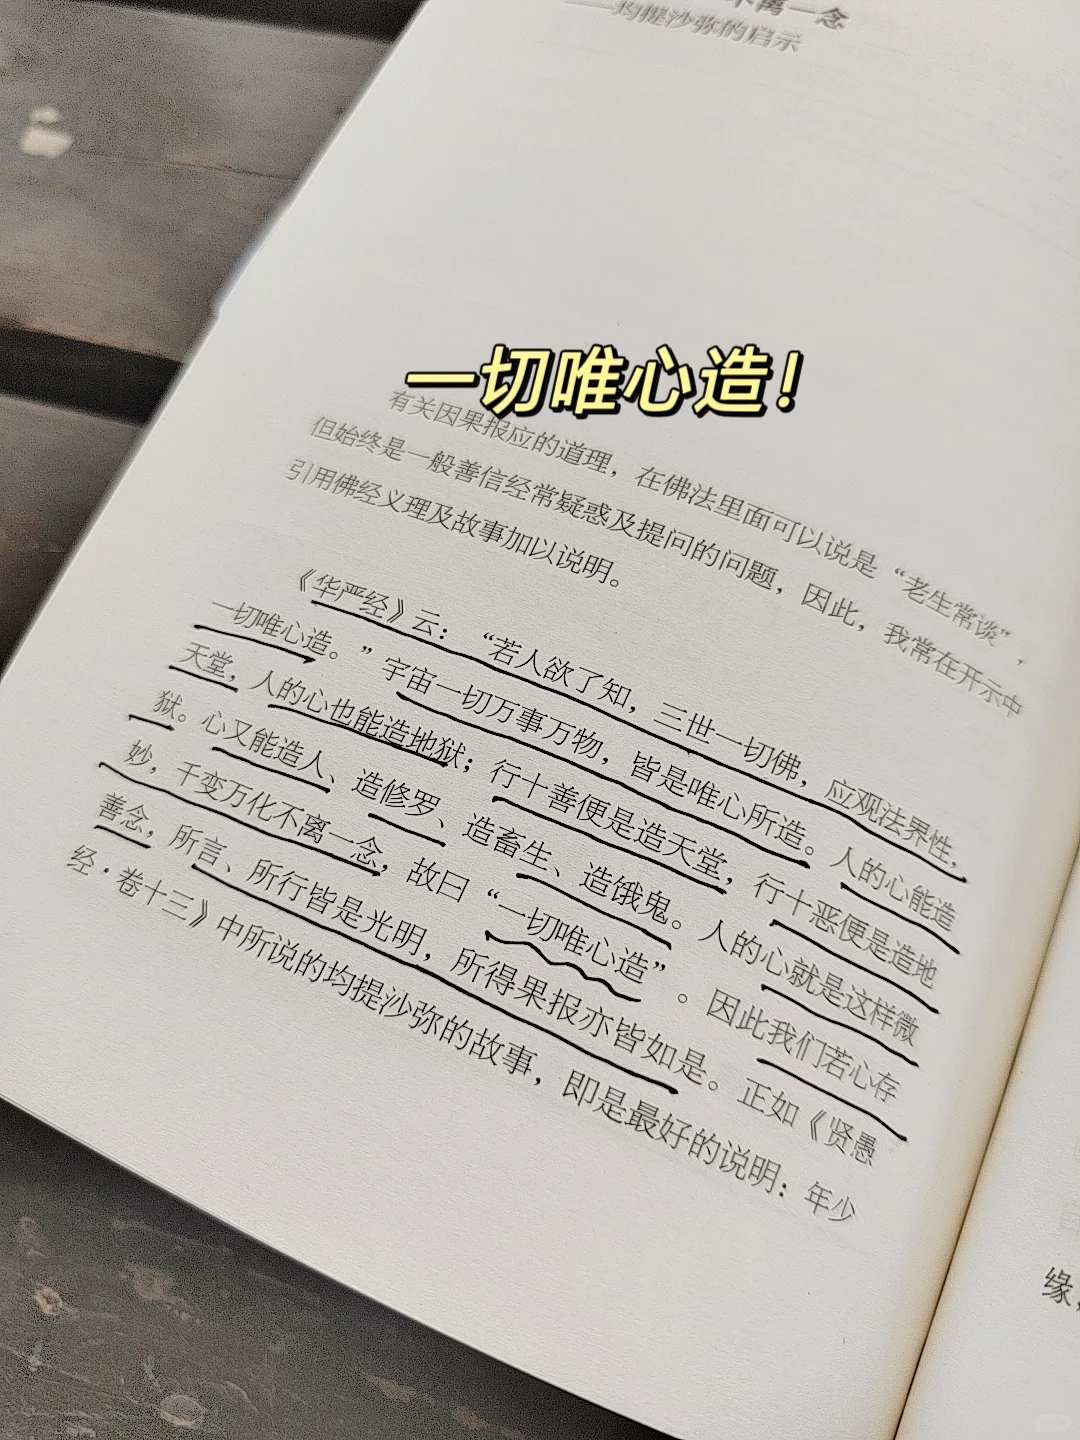 离一念
——均提沙弥的启示
一切唯心造！
有关因果报应的道理，在佛法里面可以说是“老生常谈”，
但始终是一般善信经常疑惑及提问的问题，因此，我常在开示中
引用佛经义理及故事加以说明。
《华严经》云：“若人欲了知，三世一切佛，应观法界性，
一切唯心造。”宇宙一切万事万物，皆是唯心所造。人的心能造
天堂，人的心也能造地狱；行十善便是造天堂，行十恶便是造地
狱。心又能造人、造修罗、造畜生、造饿鬼。人的心就是这样微
妙，千变万化不离一念，故曰“一切唯心造”。因此我们若心存
善念，所言、所行皆是光明，所得果报亦皆如是。正如《贤愚
经·卷十三》中所说的均提沙弥的故事，即是最好的说明：年少
缘，